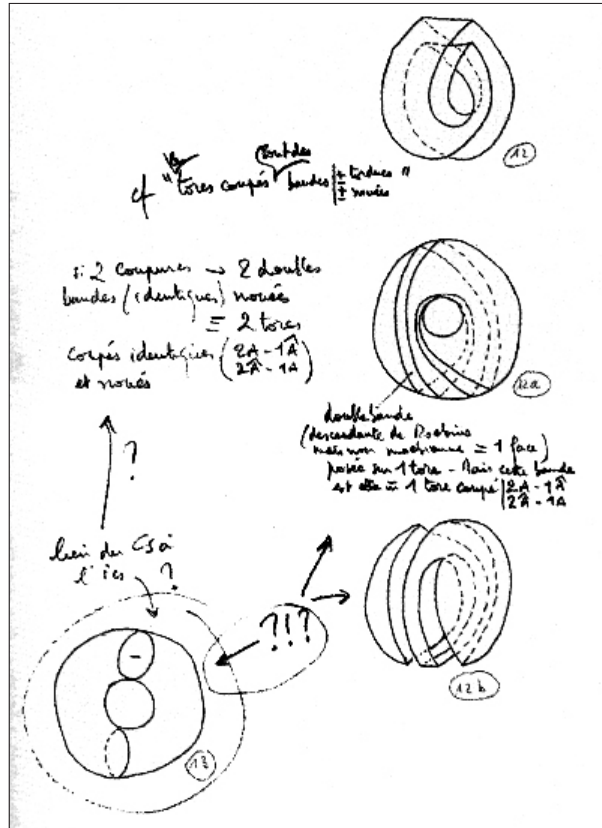 12
cf "tores coupés bandes ± tordues "
± nouées
si 2 coupures → 2 doubles
bandes (identiques) nouées
≡ 2 tores
coupés identiques (2A - 1Â
2Â - 1A)
et noués
12a
double bande
(descendante de Moebius
mais non moebienne ≡ 1 face)
posée sur 1 tore - Mais cette bande
est elle ≡ 1 tore coupé 2A - 1Â
2Â - 1A
?
lien du CS à
l'ics ?
?!?
12b
13